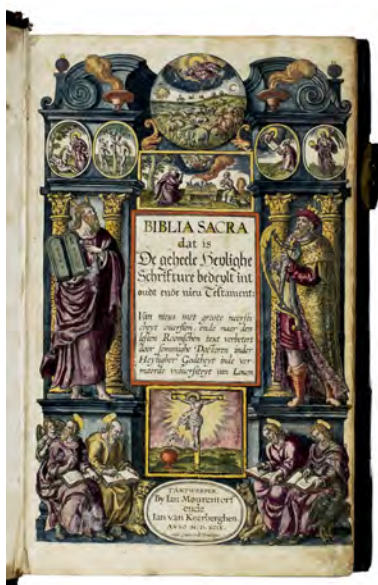 BIBLIA SACRA
dat is
De geheele Heylighe
Schrifture bedeylt int
oudt ende nieu Testament:
Van nieus met groote neersti
cheyt oversien, ende naer den
lesten Roomschen text verbetert
door sommighe Doctoren inder
Heyligher Godtheyt inde ver
maerde universiteyt van Loven
T'ANTWERPEN
By Ian Mourentorf
ende
Ian van Keerberghen.
ANNO M.D.XCIX.